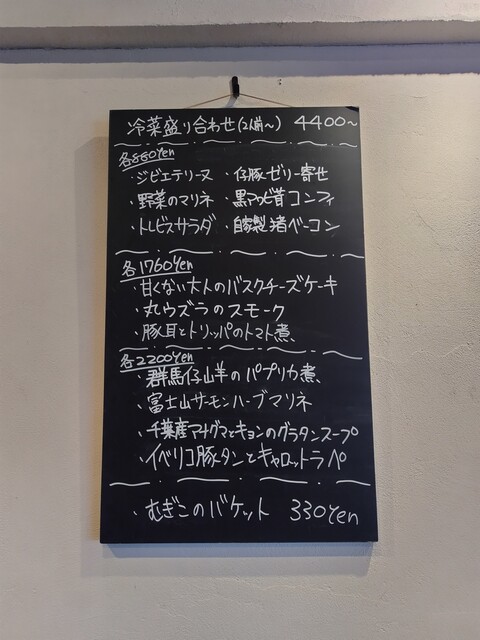 冷菜盛り合わせ(2人前〜) 4400〜
各880Yen
・ジビエテリーヌ ・仔豚ゼリー寄せ
・野菜のマリネ ・黒アワビ茸コンフィ
・トレビスサラダ ・自家製猪ベーコン
各1760Yen
・甘くない大人のバスクチーズケーキ
・丸ウズラのスモーク
・豚耳とトリッパのトマト煮
各2200Yen
・群馬仔山羊のパプリカ煮
・富士山サーモンハーブマリネ
・千葉産アナグマとキョンのグラタンスープ
・イベリコ豚タンとキャロットラペ
・むぎこのバケット 330Yen